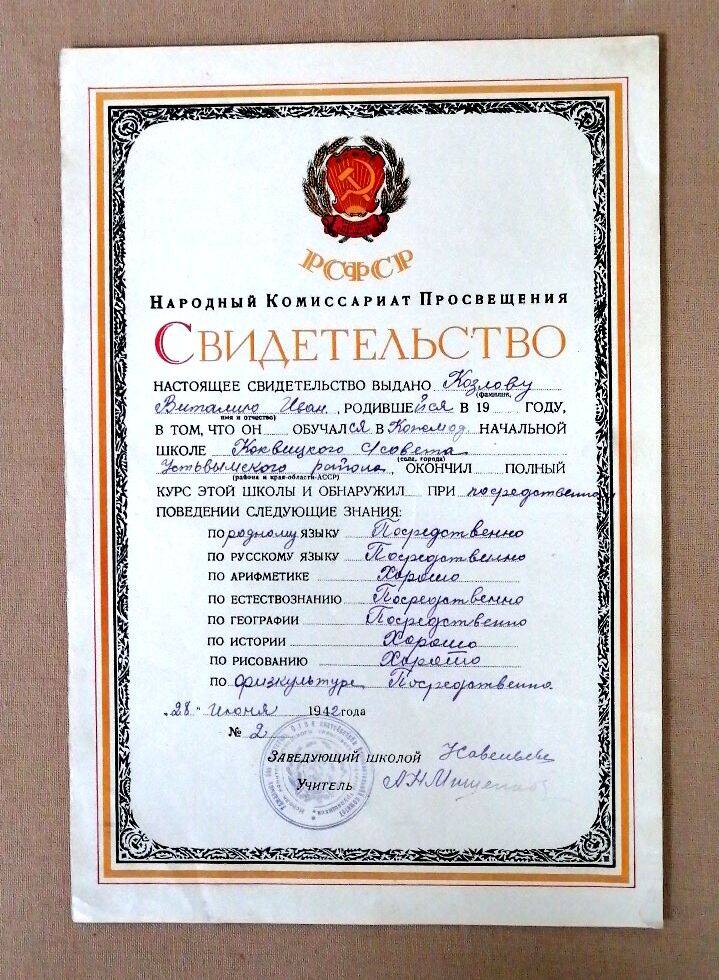 РСФСР
Народный Комиссариат Просвещения
Свидетельство
настоящее свидетельство выдано Козлову
(фамилия,
Виталию Иван. , родившейся в 19 году,
имя и отчество)
в том, что он обучался в начальной
школе Коквицкого с/совета
(села, города)
Устьвымского района , окончил полный
(района и края-области-АССР)
курс этой школы и обнаружил при посредственном
поведении следующие знания:
по родному языку Посредственно
по русскому языку Посредственно
по арифметике Хорошо
по естествознанию Посредственно
по географии Посредственно
по истории Хорошо
по рисованию Хорошо
по физкультуре Посредственно.
„28“ июня 1942 года
№ 2
Заведующий школой
Учитель